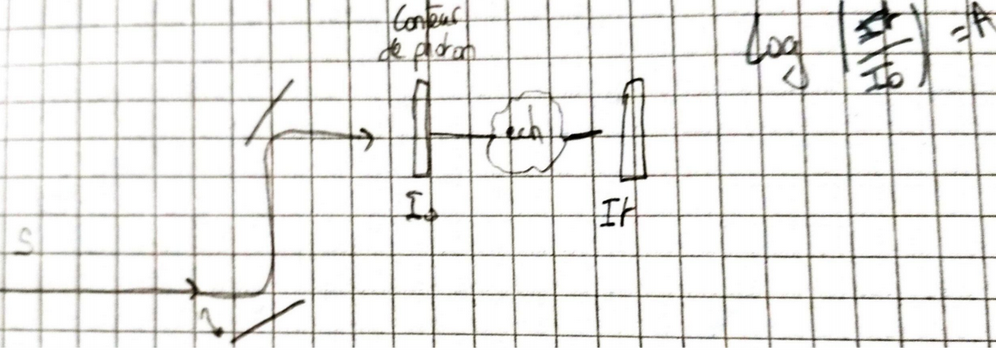 Conteur
de photon
log (It/I0) = A
ech
I0
It
S